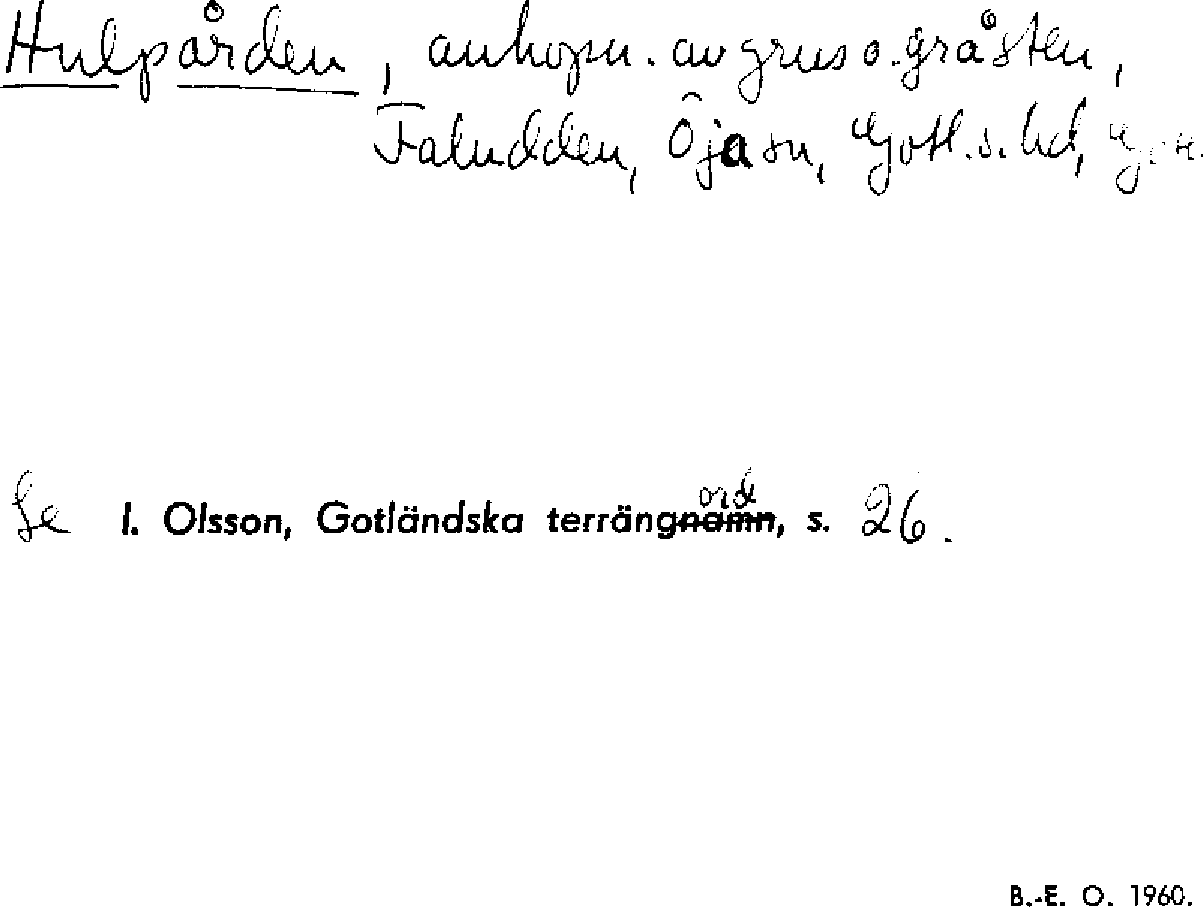 Hulpården, anhopn. av grus o. gråsten,
Faludden, Öja sn, Gotl. s. hd,
Se I. Olsson, Gotländska terrängnamn, s. 26.
ord
B.-E. O. 1960.